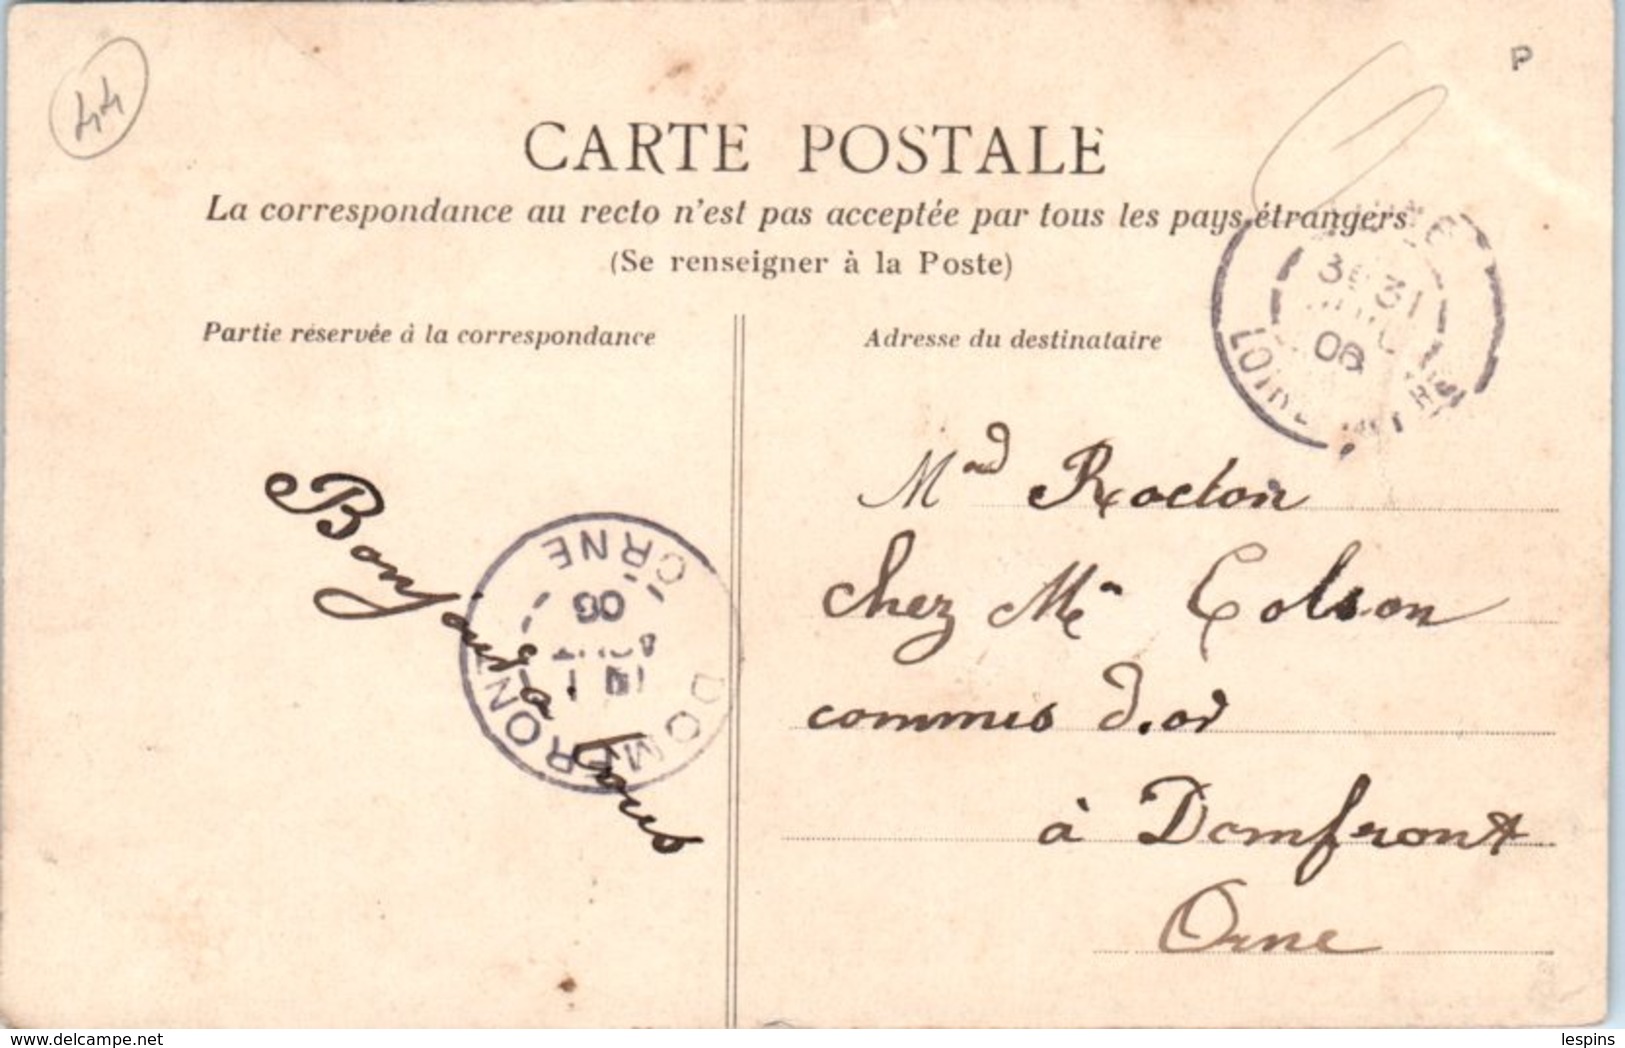 44
P
CARTE POSTALE
La correspondance au recto n'est pas acceptée par tous les pays étrangers
(Se renseigner à la Poste)
Partie réservée à la correspondance
Adresse du destinataire
31
06
LOIRE
Bonjour à tous
DOMFRONT
AOUT
06
ORNE
Mad Rocton
chez Mr Colson
commis d'or
à Domfront
Orne
https://www.delcampe.net
lespins